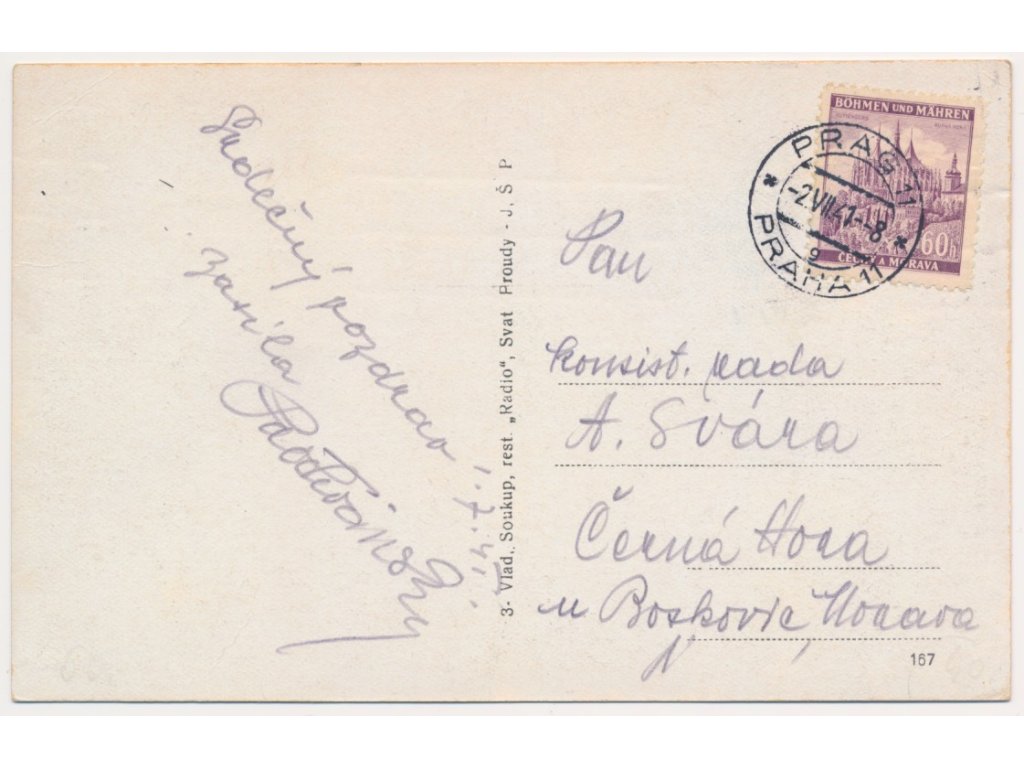 Srdečný pozdrav
zasílá
1.7.41.
3- Vlad. Soukup, rest. „Radio", Svat Proudy - J. Š P
BÖHMEN UND MÄHREN
60h
ČECHY A MORAVA
PRAG 11
-2.VII.41-8
9
PRAHA 11
Pan
konsist. rada
A. Svára
Černá Hora
u Boskovic, Morava
167